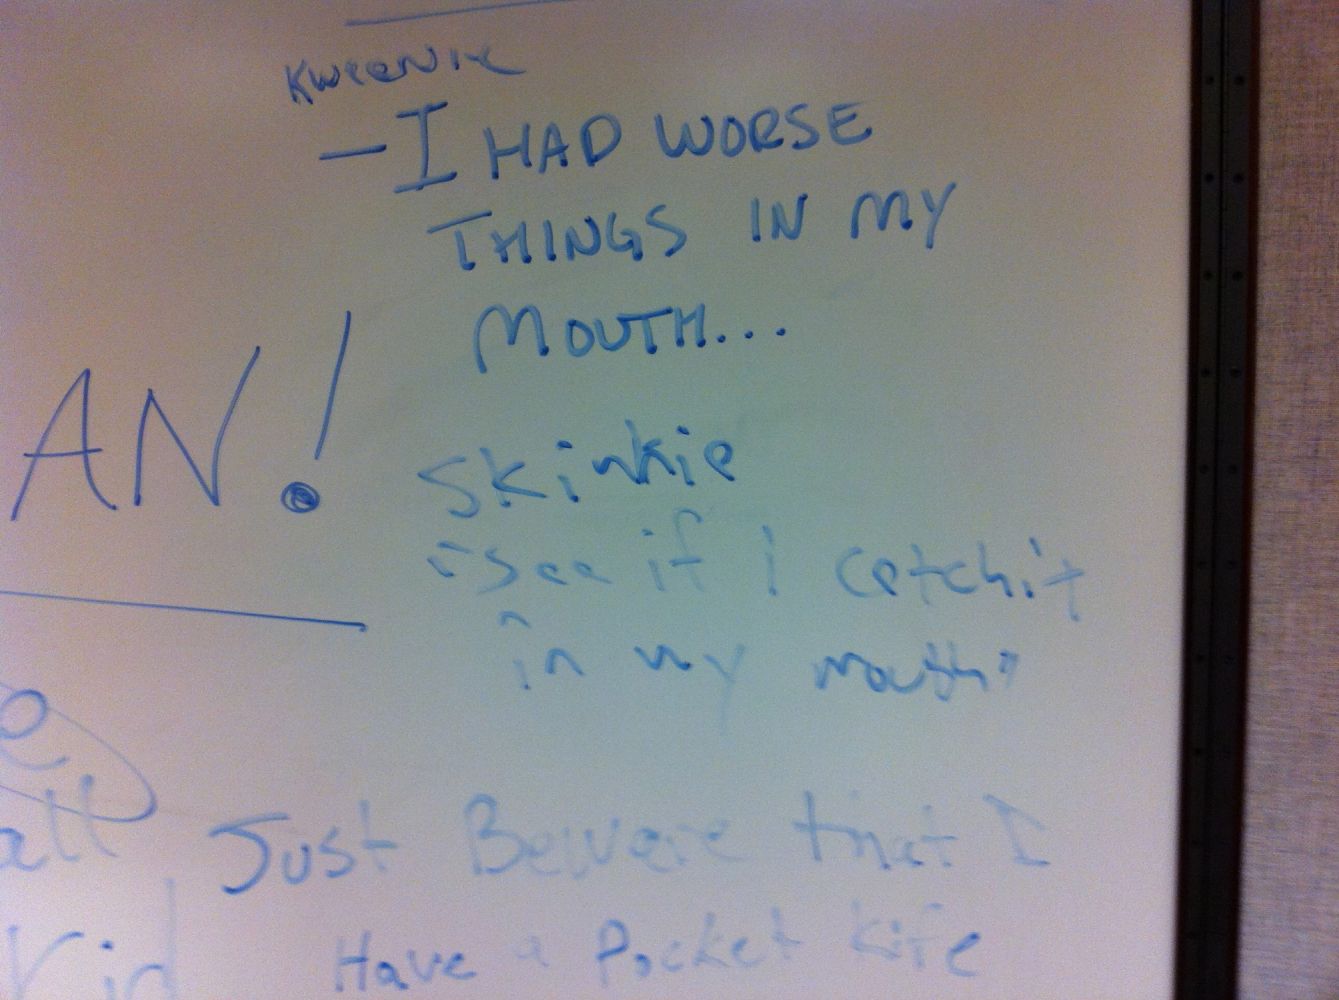 Kweenie
— I HAD WORSE
THINGS IN MY
MOUTH...
AN!
Skinkie
"See if I catch it
in my mouth"
e
all
Just Beware that I
rid
Have a Pocket kife